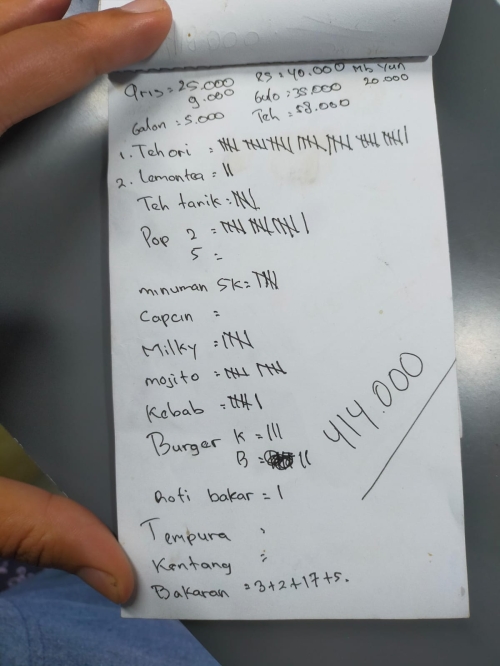 Qris = 25.000 Es = 40.000 Mb Yun
9.000 Gulo = 35.000 20.000
Galon = 5.000 Teh = 58.000
1. Teh ori = 卌 卌 卌 卌 卌 卌 卌 |
2. Lemontea = ||
Teh tarik = 卌
Pop 2 = 卌 卌 卌 |
5 =
minuman 5k = 卌
Capcin =
Milky = 卌
mojito = 卌 卌
Kebab = 卌 |
Burger K = |||
B = ||
414.000
Roti bakar = 1
Tempura :
Kentang =
Bakaran = 3+2+17+5.